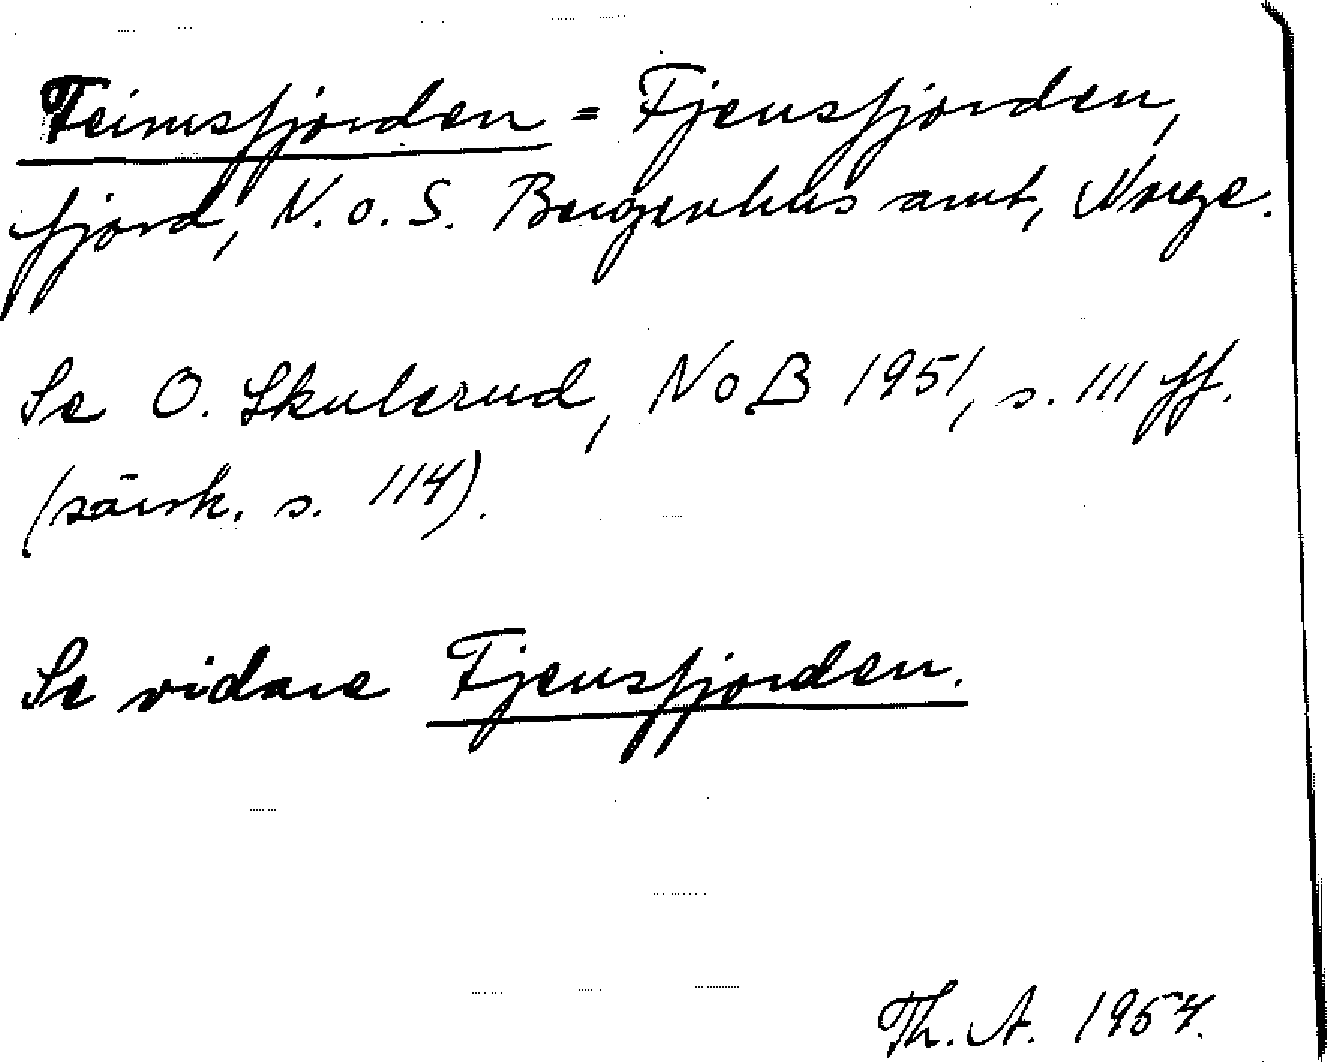 Feimsfjorden = Fjensfjorden,
fjord, N. o. S. Bergenhus amt, Norge.
Se O. Skulerud, NoB 1951, s. 111 ff.
(särsk. s. 114).
Se vidare Fjensfjorden.
Th. A. 1954.